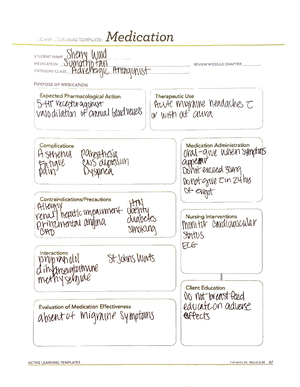 ACTIVE LEARNING TEMPLATE: Medication
STUDENT NAME Sherry Wood
MEDICATION Sumatriptan REVIEW MODULE CHAPTER
CATEGORY CLASS Adrenergic Antagonist
PURPOSE OF MEDICATION
Expected Pharmacological Action
5-HT receptor agonist
vasodilation of cranial blood vessels
Therapeutic Use
Acute migraine headaches c
or with out aura
Complications
Asthenia paresthesia
Fatigue CNS depression
pain Dyspnea
Medication Administration
oral - give when symptoms
appear
Do not exceed
Do not give in 24 hrs
of ergot
Contraindications/Precautions
Allergy HTN
renal/hepatic impairment obesity
prinzmental angina diabetes
CAD smoking
Nursing Interventions
monitor cardiovascular
status
ECG
Interactions
propranolol St. Johns Worts
dihydroergotamine
methysergide
Client Education
Do not breast feed
educate on adverse
effects
Evaluation of Medication Effectiveness
absent of migraine symptoms
ACTIVE LEARNING TEMPLATES A7